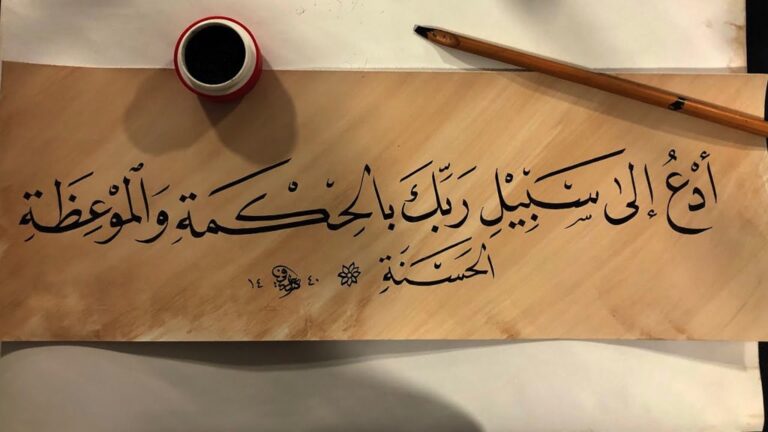 أدْعُ إلى سَبِيْلِ رَبِّكَ بالحِكْمَةِ وَالموْعِظَةِ
الحَسَنَةِ ٤٠ ١٤